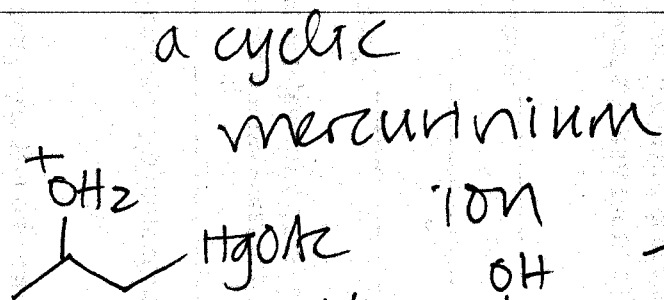 a cyclic
mercurinium
ion
+
OH2
HgOAc
OH